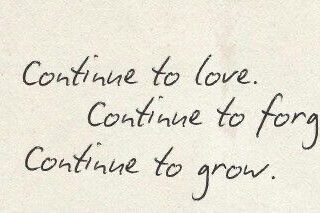 Continue to love.
Continue to forg
Continue to grow.